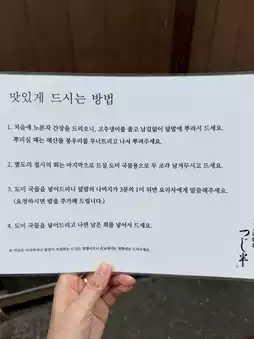 맛있게 드시는 방법
1. 처음에 노른자 간장을 드리오니, 고추냉이를 풀고 남김없이 덮밥에 뿌려서 드세요.
뿌리실 때는 해산물 봉우리를 무너트리고 나서 뿌려주세요.
2. 별도의 접시의 회는 마지막으로 드실 도미 국물용으로 두 조각 남겨두시고 드세요.
3. 도미 국물을 넣어드리니 덮밥의 나머지가 3분의 1이 되면 요리사에게 말씀해주세요.
(요청하시면 밥을 추가해 드립니다.)
4. 도미 국물을 넣어드리고 나면 남은 회를 넣어서 드세요.
つじ半